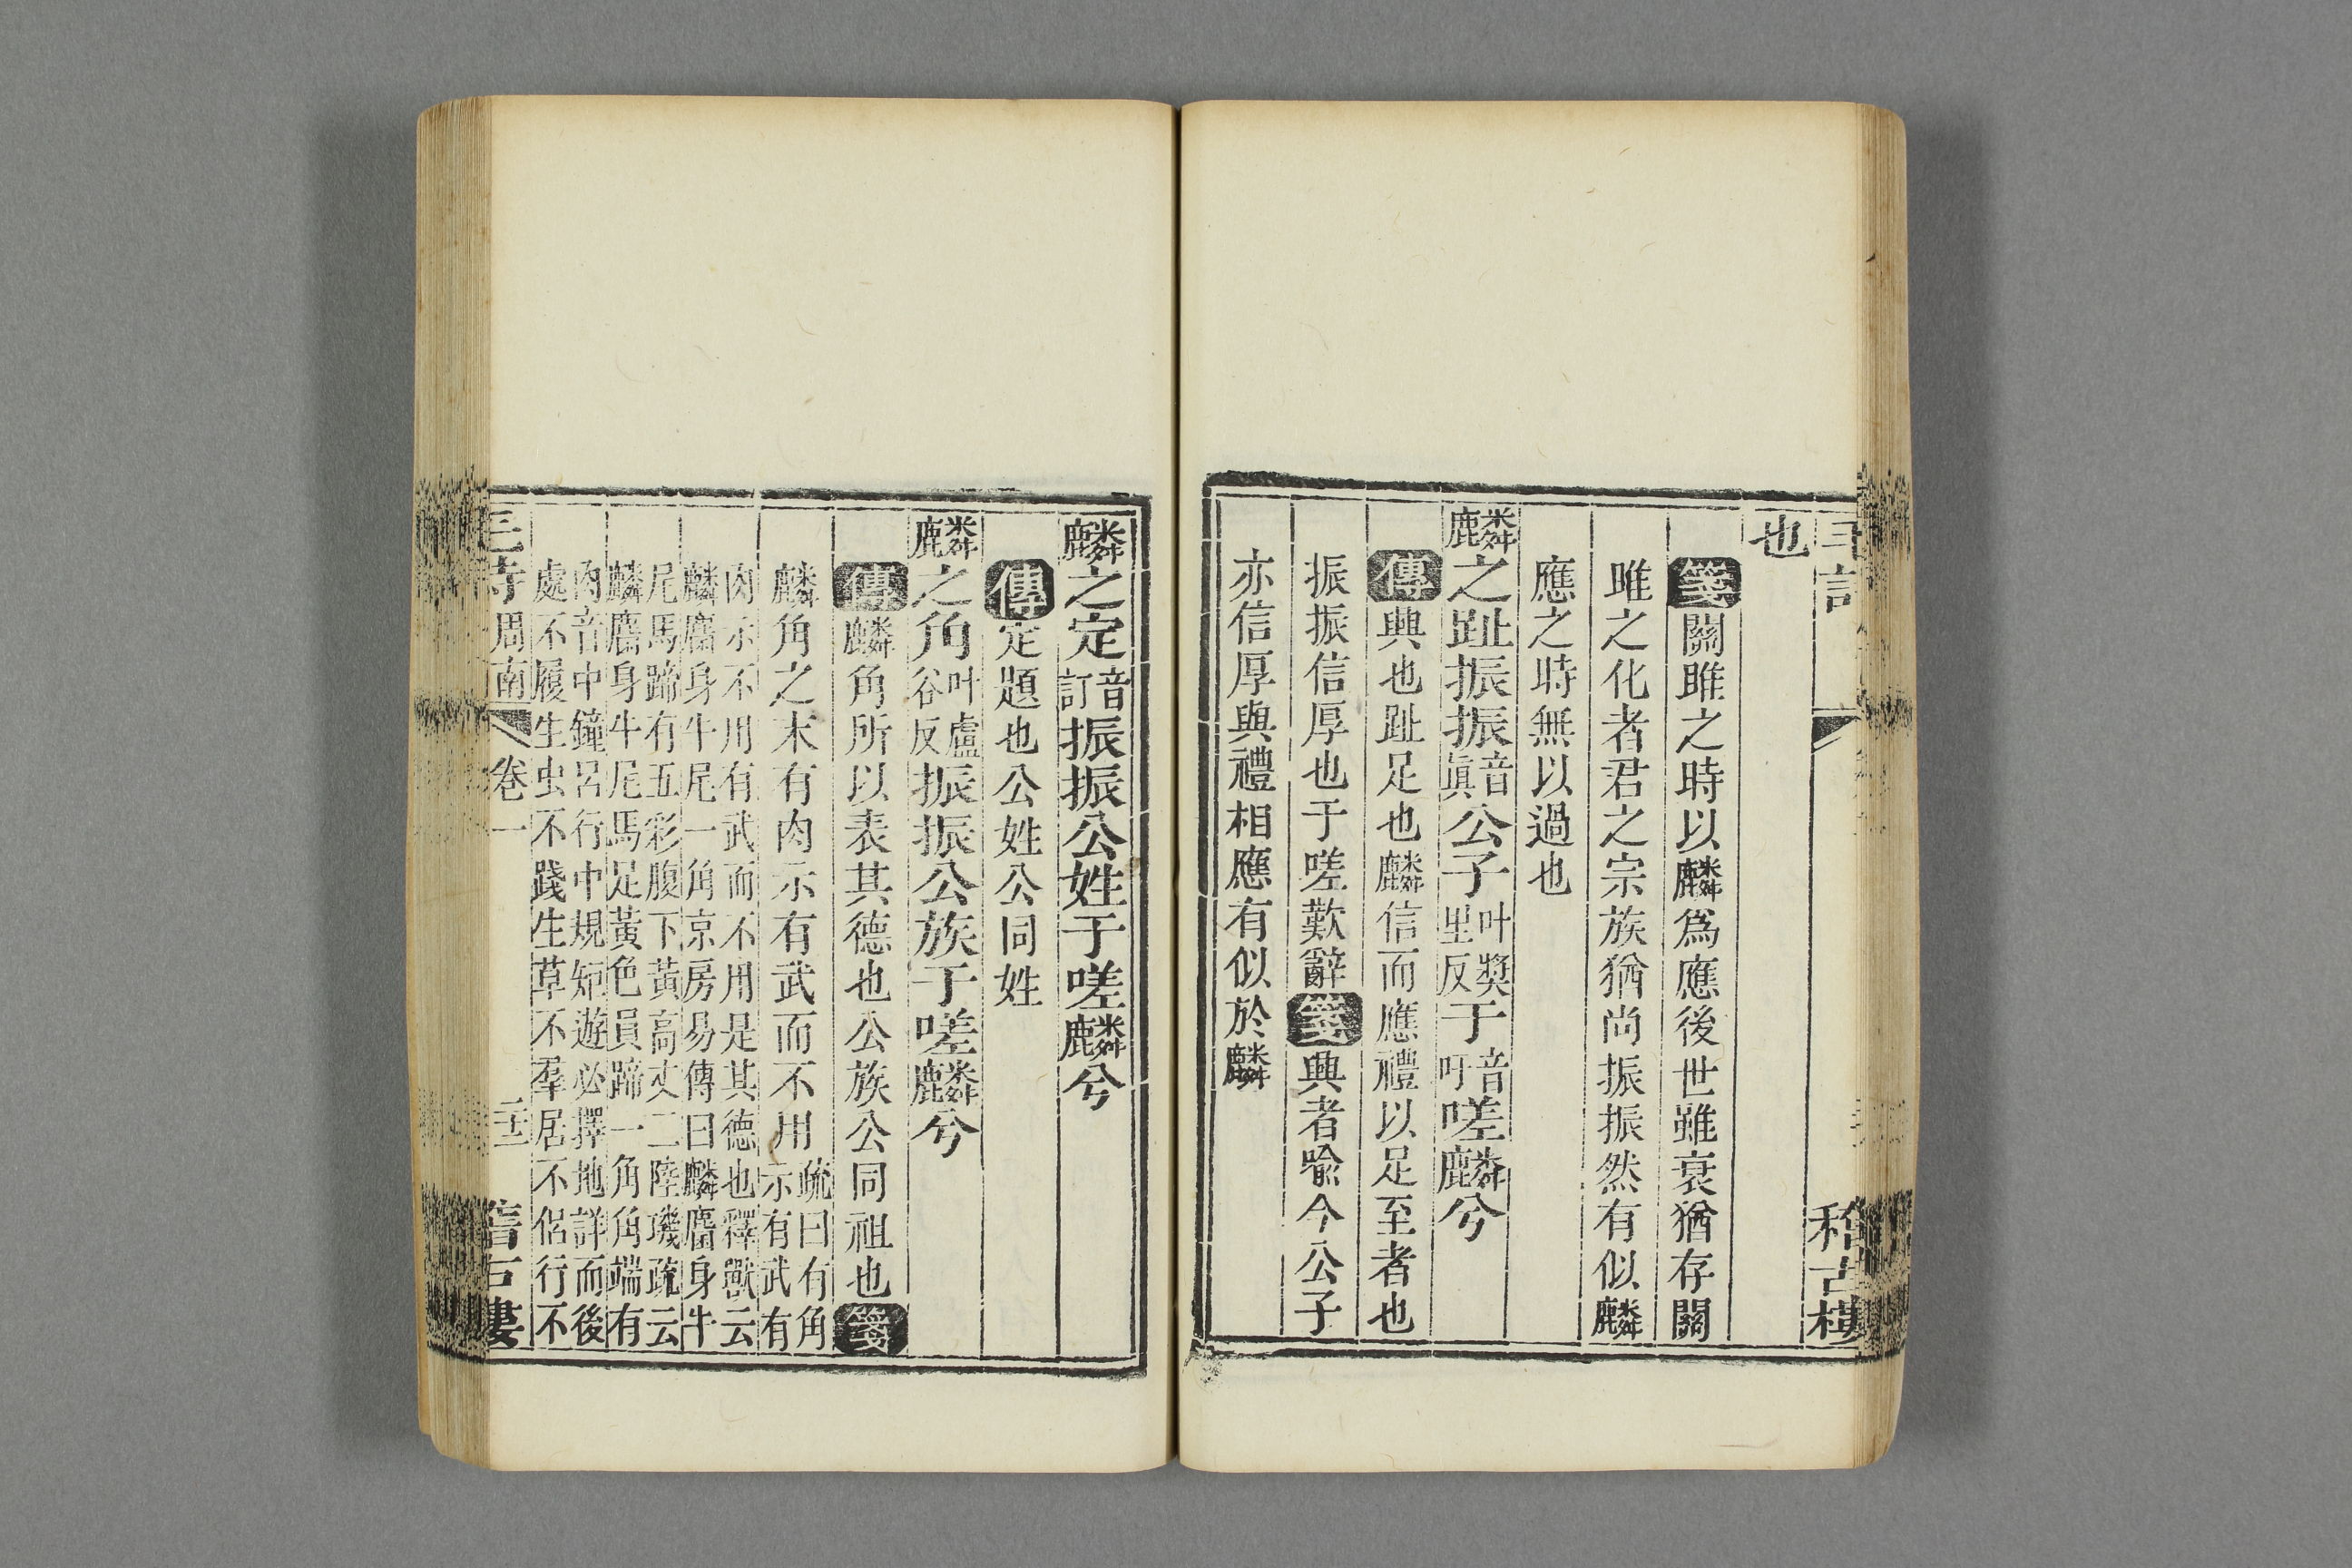 也
箋關雎之時以麟爲應後世雖衰猶存關
雎之化者君之宗族猶尚振振然有似麟
應之時無以過也
麟之趾振振音眞公子叶奬里反于音吁嗟麟兮
傳興也趾足也麟信而應禮以足至者也
振振信厚也于嗟歎辭箋興者喩今公子
亦信厚與禮相應有似於麟
稽古樓
麟之定音訂振振公姓于嗟麟兮
傳定題也公姓公同姓
麟之角叶盧谷反振振公族于嗟麟兮
傳麟角所以表其德也公族公同祖也箋
麟角之末有肉示有武而不用疏曰有角示有武有
肉示不用有武而不用是其德也釋獸云
麟麕身牛尾一角京房易傳曰麟麕身牛
尾馬蹄有五彩腹下黃高丈二陸璣疏云
麟麕身牛尾馬足黃色員蹄一角角端有
肉音中鐘呂行中規矩遊必擇地詳而後
處不履生虫不踐生草不羣居不侶行不
周南
卷一
古樓